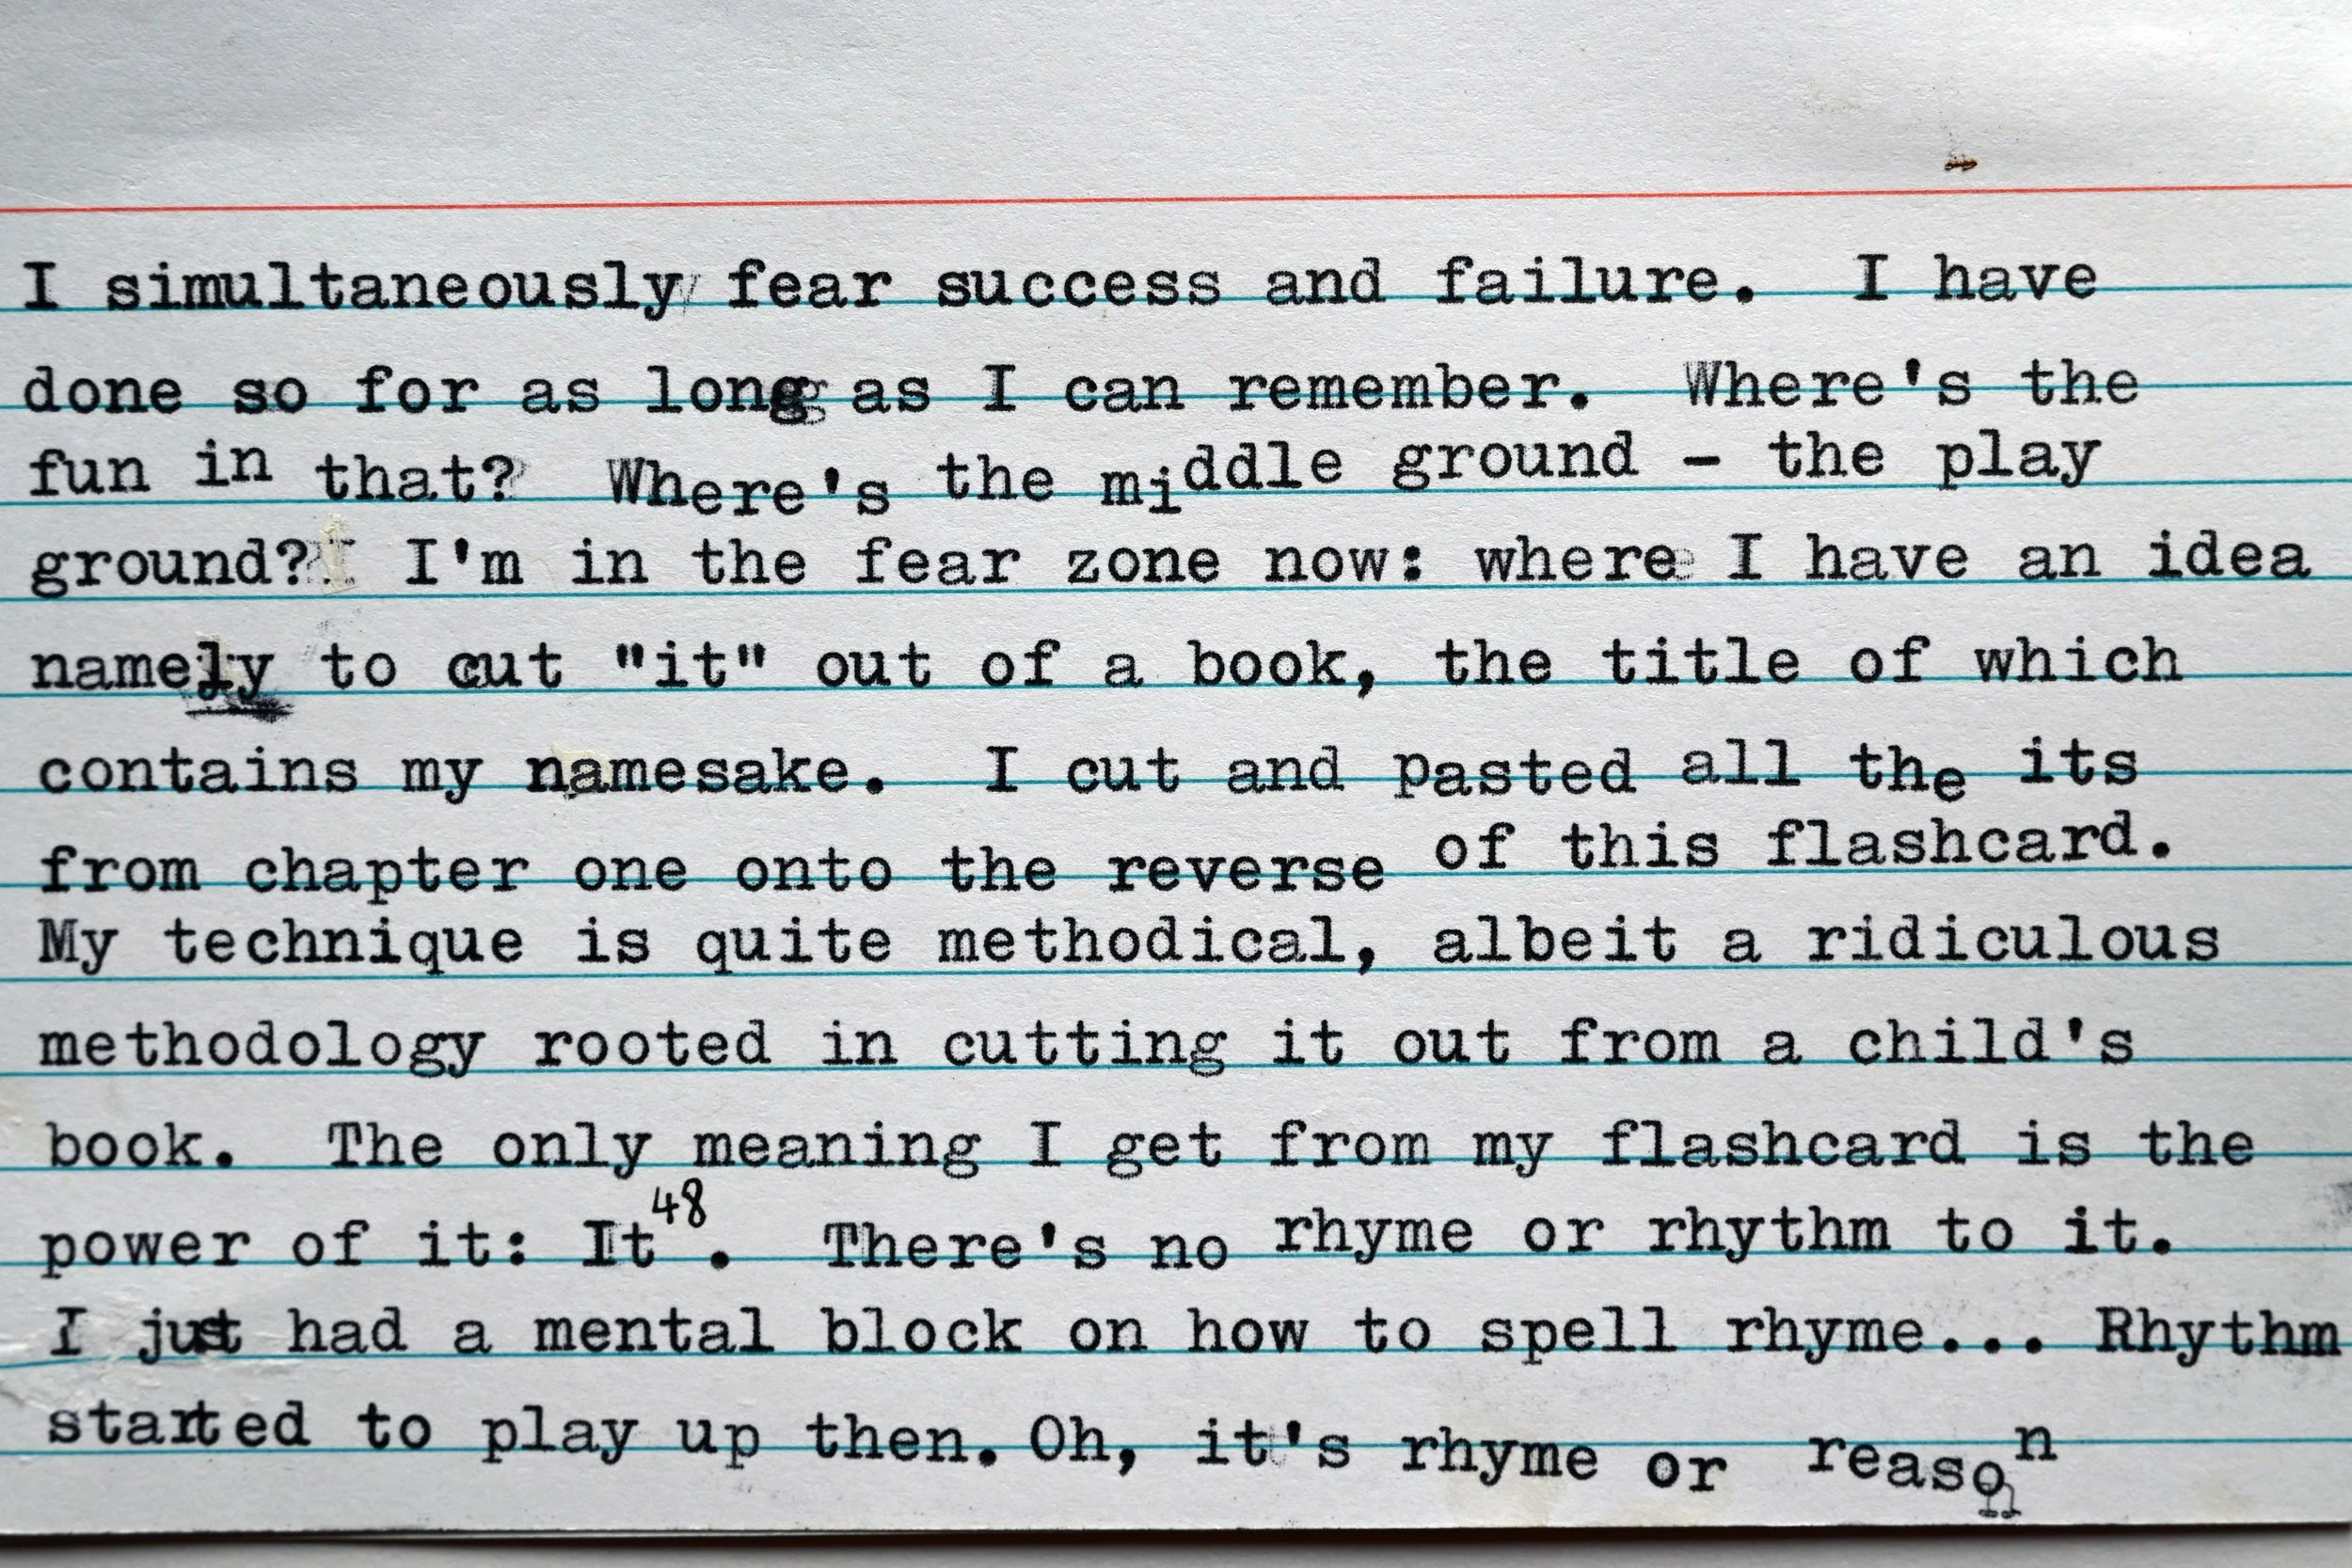 I simultaneously fear success and failure.  I have
done so for as long as I can remember.  Where's the
fun in that?  Where's the middle ground - the play
ground?  I'm in the fear zone now: where I have an idea
namely to cut "it" out of a book, the title of which
contains my namesake.  I cut and pasted all the its
from chapter one onto the reverse of this flashcard.
My technique is quite methodical, albeit a ridiculous
methodology rooted in cutting it out from a child's
book.  The only meaning I get from my flashcard is the
power of it: It⁴⁸.  There's no rhyme or rhythm to it.
I just had a mental block on how to spell rhyme... Rhythm
started to play up then. Oh, it's rhyme or reason